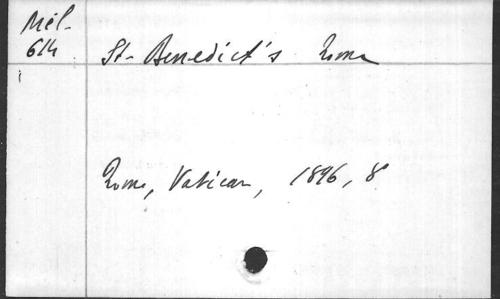 Mél.
614
St. Benedict's Rome
Rome, Vatican, 1896, 8°